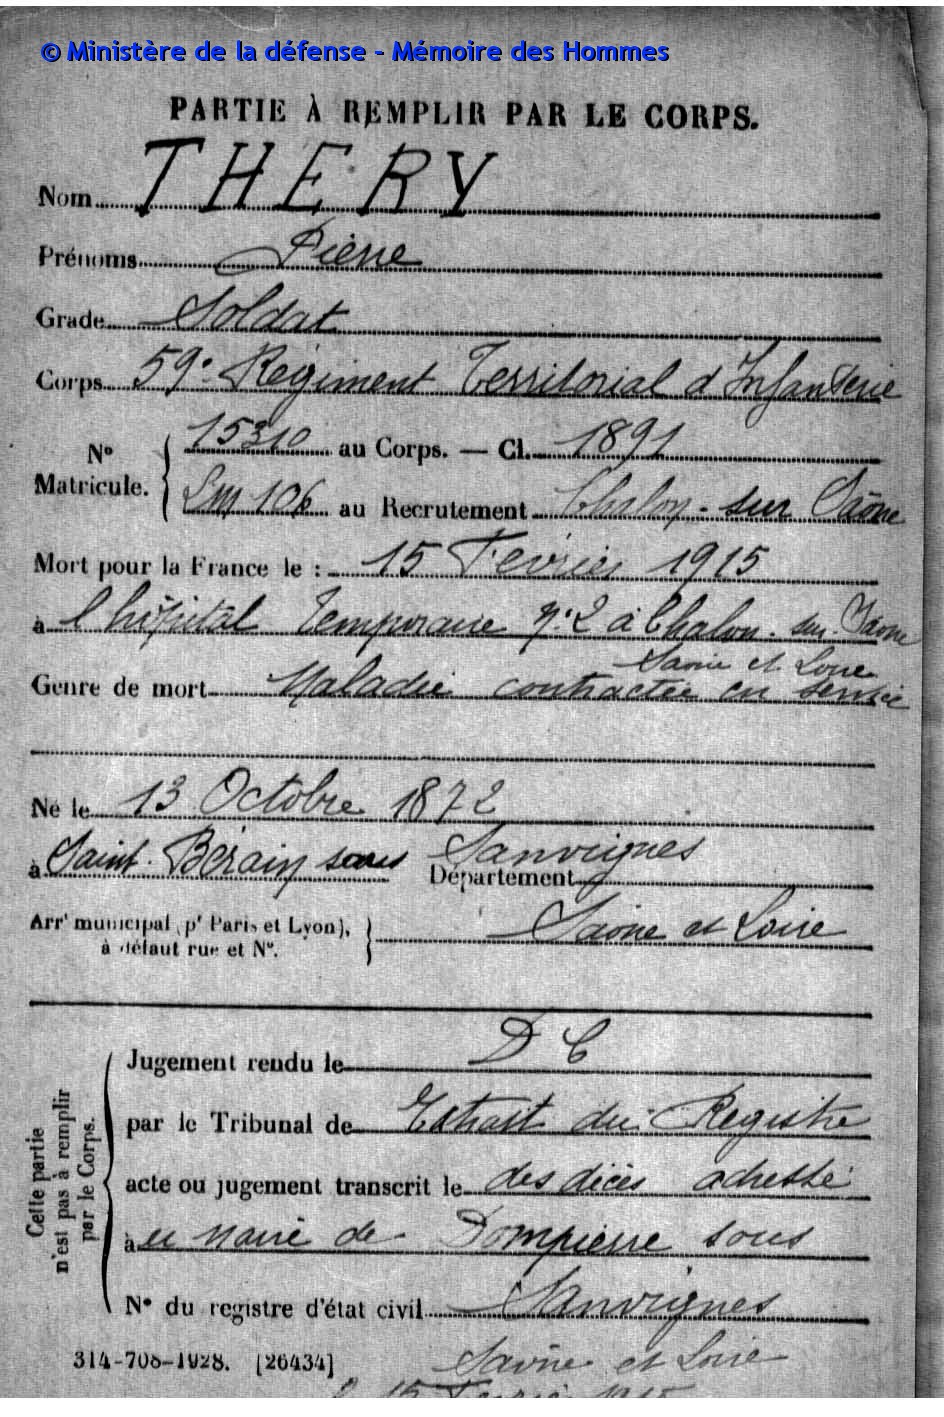 © Ministère de la défense - Mémoire des Hommes
PARTIE À REMPLIR PAR LE CORPS.
Nom THERY
Prénoms Pierre
Grade Soldat
Corps 59e Régiment Territorial d'Infanterie
N° Matricule. 15310 au Corps. — Cl. 1891
Lm 106 au Recrutement Chalon-sur Saône
Mort pour la France le : 15 Février 1915
à l'hôpital temporaire n° 2 à Chalon-sur-Saone
Saone et Loire
Genre de mort Maladie contractée en service
Né le 13 Octobre 1872
à Saint-Bérain sous Sanvignes
Département
Arrt municipal (pr Paris et Lyon), à défaut rue et N°. Saone et Loire
Cette partie n'est pas à remplir par le Corps.
Jugement rendu le D C
par le Tribunal de Extrait du Registre
acte ou jugement transcrit le des décès adressé
à au maire de Dompierre sous
N° du registre d'état civil Sanvignes
314-708-1928. [26434] Saone et Loire
le 15 Février 1915